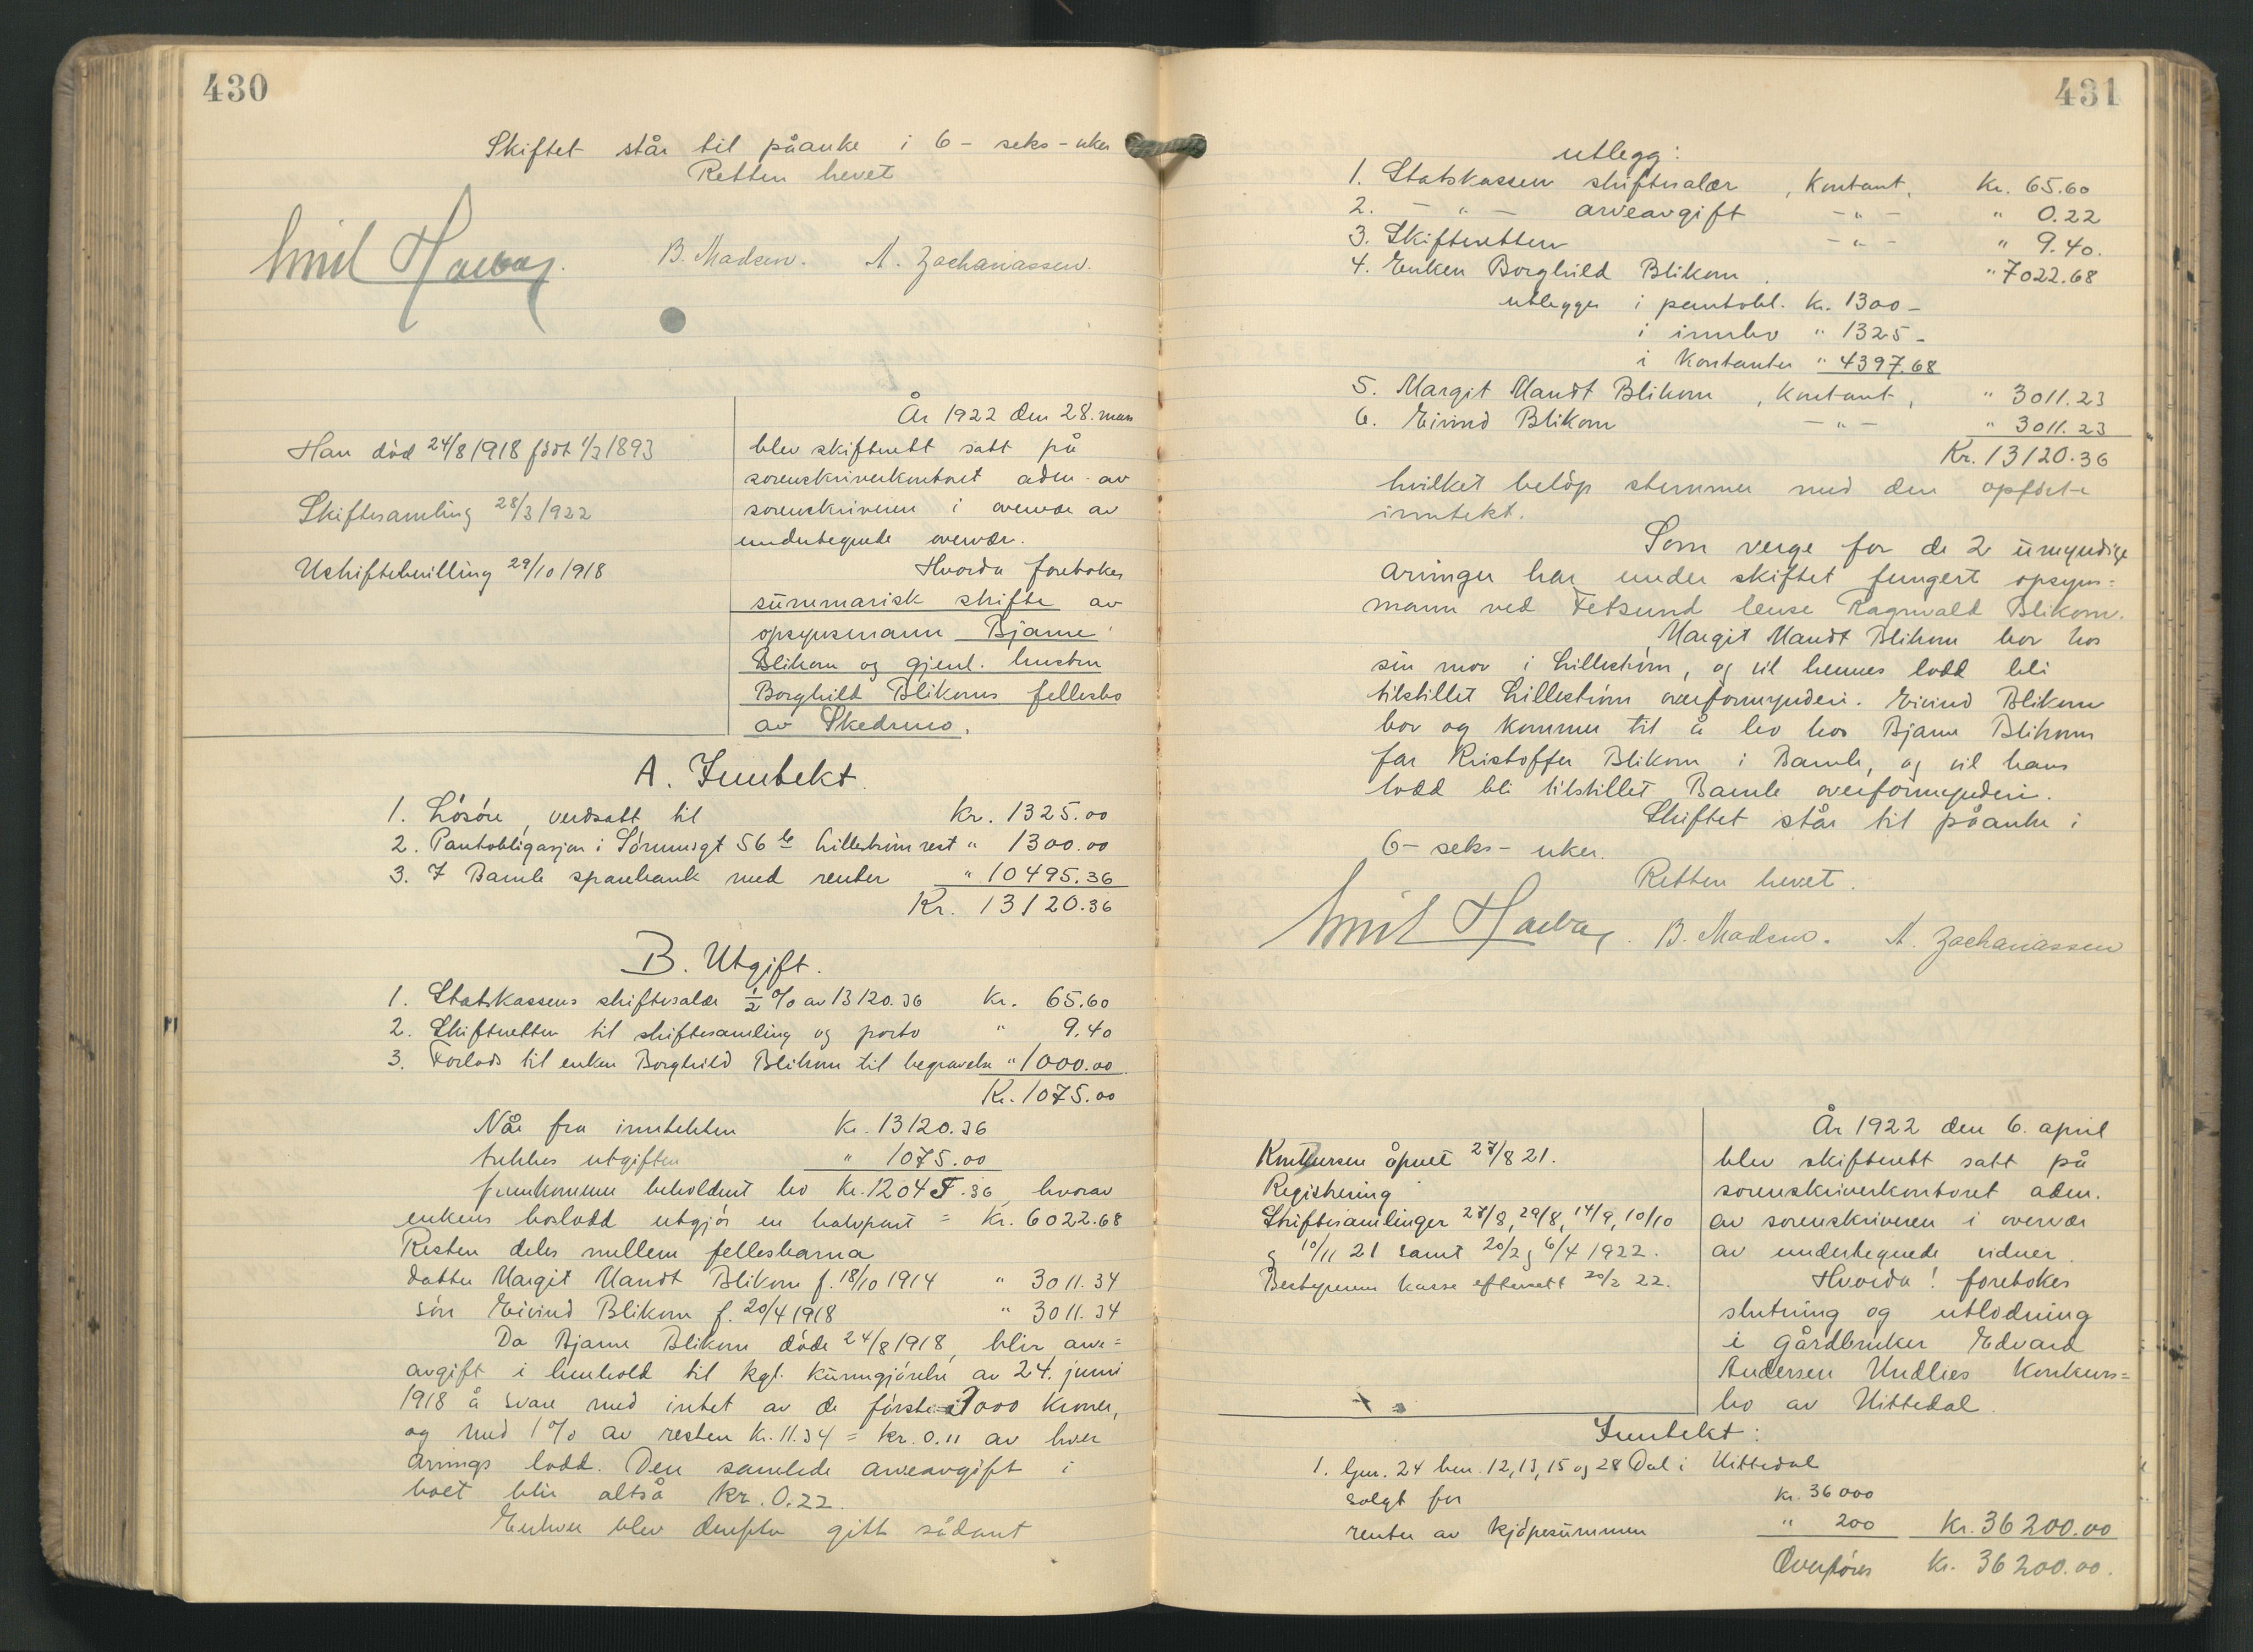 430
Skiftet står til påanke i 6 - seks - uker
Retten hevet
Emil B. Madsen. A. Zachariassen.
Han död 24/8 1918 född 1/3 1893
Skiftesamling 28/3 1922
Uskiftebevilling 29/10 1918
År 1922 den 28. mars
blev skifterett satt på
sorenskriverkontoret adm. av
sorenskriveren i overvær av
undertegnede overvær.
Hvorda foretokes
summarisk skifte av
opsynsmann Bjarne
Blikom og gjenl. hustru
Borghild Blikoms fellesbo
av Skedsmo.
A. Inntekt.
1. Lösöre, verdsatt til Kr. 1325.00
2. Pantobligasjon i Sörumsgt 56 b Lilleström rest " 1300.00
3. I Bamle sparebank med renter " 10495.36
Kr. 13120.36
B. Utgift.
1. Statskassens skiftesalær 1/2 % av 13120.36 Kr. 65.60
2. Skifteretten til skiftesamling og porto " 9.40
3. Forlods til enken Borghild Blikom til begravelse " 1000.00
Kr. 1075.00
Når fra inntekten Kr. 13120.36
trekkes utgiften " 1075.00
fremkommer beholdent bo Kr. 12045.36, hvorav
enkens boslodd utgjör en halvpart = Kr. 6022.68
Resten deles mellem fellesbarna
datter Margit Mandt Blikom f. 18/10 1914 " 3011.34
sön Eivind Blikom f. 20/4 1918 " 3011.34
Da Bjarne Blikom döde 24/8 1918, blir arve=
avgift i henhold til kgl. kunngjörelse av 24. juni
1918 å svare med intet av de förste 3000 kroner,
og med 1 % av resten Kr. 11.34 = kr. 0.11 av hver
arvings lodd. Den samlede arveavgift i
boet blir altså Kr. 0.22.
Enhver blev derefter gitt sådant
431
utlegg:
1. Statskassen skiftesalær, kontant, Kr. 65.60
2. - " - arveavgift - " - " 0.22
3. Skifteretten - " - " 9.40.
4. Enken Borghild Blikom " 7022.68
utlegges i pantobl. Kr. 1300 -
i innbo " 1325 -
i kontanter " 4397.68
5. Margit Mandt Blikom, kontant, " 3011.23
6. Eivind Blikom - " - " 3011.23
Kr. 13120.36
hvilket belöp stemmer med den opförte
inntekt.
Som verge for de 2 umyndige
arvinger har under skiftet fungert opsyns=
mann ved Fetsund lense Ragnvald Blikom.
Margit Mandt Blikom bor hos
sin mor i Lilleström, og vil hennes lodd bli
tilstillet Lilleström overformynderi. Eivind Blikom
bor og kommer til å bo hos Bjarne Blikoms
far Kristoffer Blikom i Bamle, og vil hans
lodd bli tilstillet Bamle overformynderi.
Skiftet står til påanke i
6 - seks - uker.
Retten hevet.
Emil B. Madsen. A. Zachariassen
Konkursen åpnet 27/8 21.
Registrering
Skiftesamlinger 27/8, 29/8, 14/9, 10/10
og 10/11 21 samt 20/2 og 6/4 1922.
Bestyrerens kasse eftersett 20/2 22.
År 1922 den 6. april
blev skifterett satt på
sorenskriverkontoret adm.
av sorenskriveren i overvær
av undertegnede vidner.
Hvorda! foretokes
slutning og utlodning
i gårdbruker Edvard
Andersen Undlies konkurs=
bo av Nittedal.
Inntekt:
1. Gnr. 24 bnr. 12, 13, 15 og 28 Dal i Nittedal
solgt for Kr. 36 000
renter av kjöpesummen " 200 Kr. 36 200.00
Overföres Kr. 36 200.00.